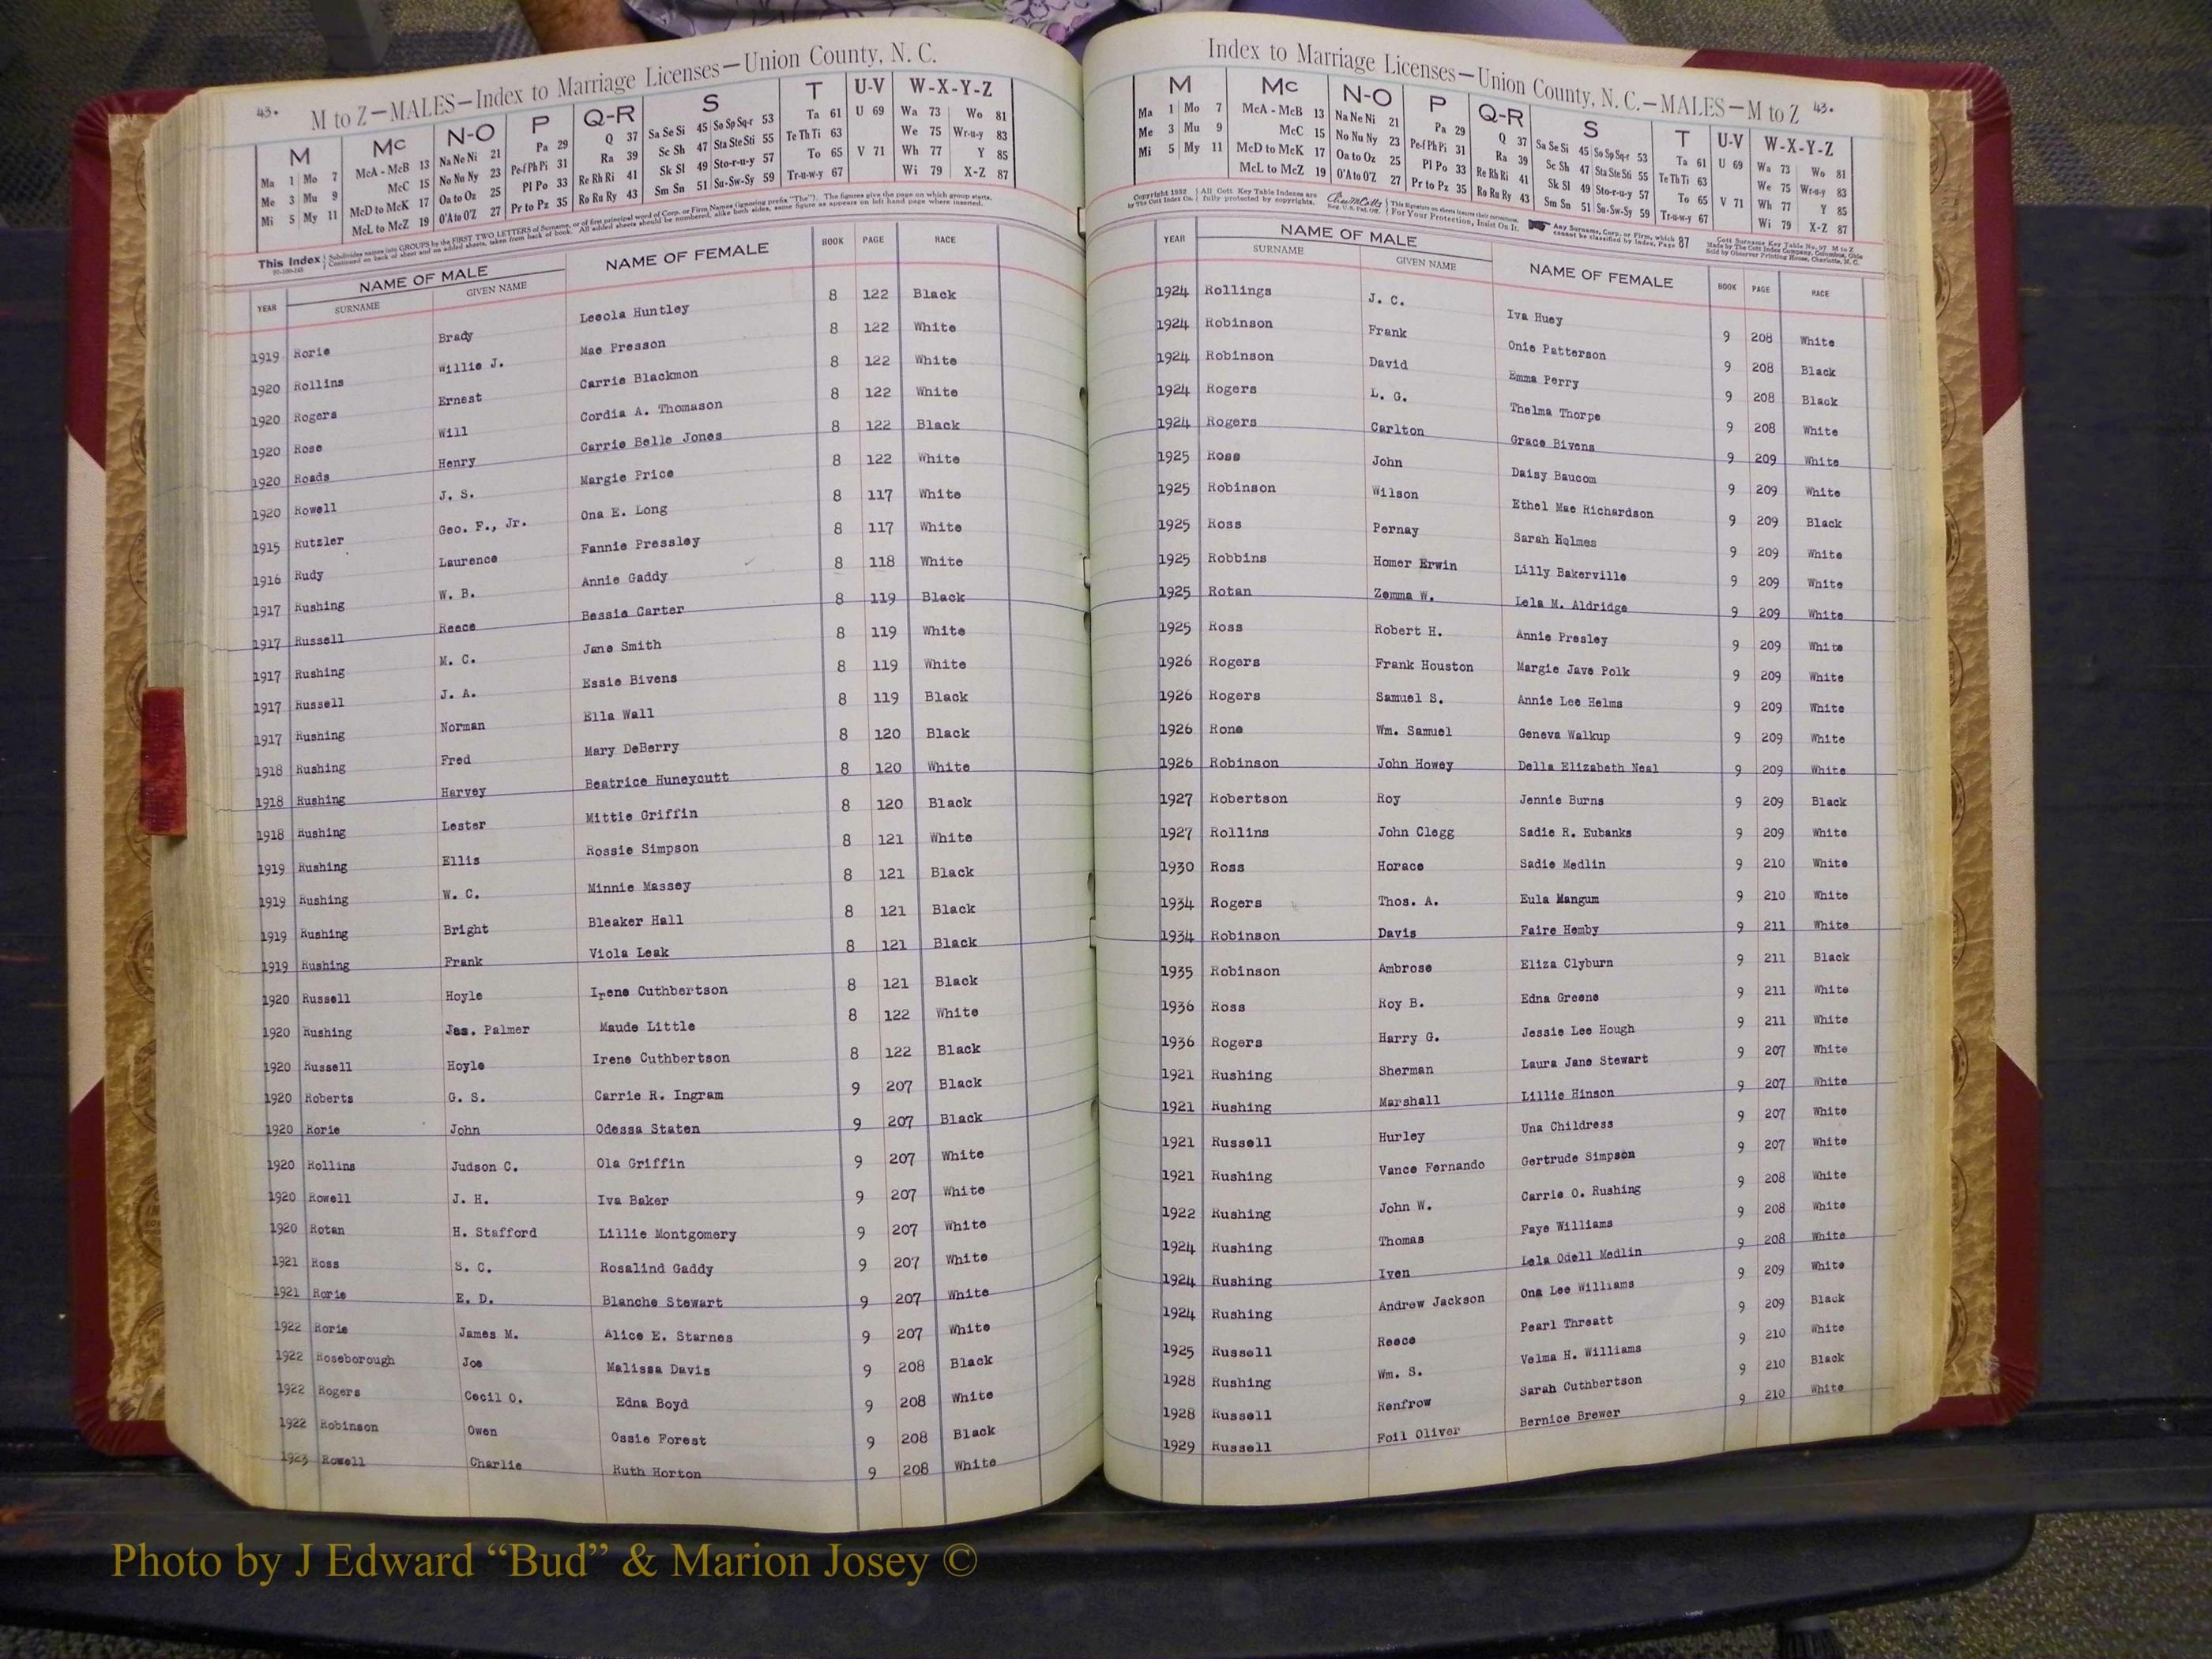 43.
M to Z—MALES—Index to Marriage Licenses—Union County, N. C.
M Mc N-O P Q-R S T U-V W-X-Y-Z
Ma 1 Mo 7 McA - McB 13 Na Ne Ni 21 Pa 29 Q 37 Sa Se Si 45 So Sp Sq-r 53 Ta 61 U 69 Wa 73 Wo 81
Me 3 Mu 9 McC 15 No Nu Ny 23 Pe-f Ph Pi 31 Ra 39 Sc Sh 47 Sta Ste Sti 55 Te Th Ti 63 We 75 Wr-u-y 83
Mi 5 My 11 McD to McK 17 Oa to Oz 25 Pl Po 33 Re Rh Ri 41 Sk Sl 49 Sto-r-u-y 57 To 65 V 71 Wh 77 Y 85
McL to McZ 19 O'A to O'Z 27 Pr to Pz 35 Ro Ru Ry 43 Sm Sn 51 Su-Sw-Sy 59 Tr-u-w-y 67 Wi 79 X-Z 87
This Index Subdivides names into GROUPS by the FIRST TWO LETTERS of Surname, or of first principal word of Corp. or Firm Names (ignoring prefix "The"). The figures give the page on which group starts.
Continued on back of sheet and on added sheets, taken from back of book. All added sheets should be numbered, alike both sides, same figure as appears on left hand page where inserted.
YEAR NAME OF MALE NAME OF FEMALE BOOK PAGE RACE
SURNAME GIVEN NAME
1919 Rorie Brady Leeola Huntley 8 122 Black
1920 Rollins Willie J. Mae Presson 8 122 White
1920 Rogers Ernest Carrie Blackmon 8 122 White
1920 Rose Will Cordia A. Thomason 8 122 White
1920 Roads Henry Carrie Belle Jones 8 122 Black
1920 Rowell J. S. Margie Price 8 122 White
1915 Rutzler Geo. F., Jr. Ona E. Long 8 117 White
1916 Rudy Laurence Fannie Pressley 8 117 White
1917 Rushing W. B. Annie Gaddy 8 118 White
1917 Russell Reece Bessie Carter 8 119 Black
1917 Rushing M. C. Jane Smith 8 119 White
1917 Russell J. A. Essie Bivens 8 119 White
1917 Rushing Norman Ella Wall 8 119 Black
1918 Rushing Fred Mary DeBerry 8 120 Black
1918 Rushing Harvey Beatrice Huneycutt 8 120 White
1918 Rushing Lester Mittie Griffin 8 120 Black
1919 Rushing Ellis Rossie Simpson 8 121 White
1919 Rushing W. C. Minnie Massey 8 121 Black
1919 Rushing Bright Bleaker Hall 8 121 Black
1919 Rushing Frank Viola Leak 8 121 Black
1920 Russell Hoyle Irene Cuthbertson 8 121 Black
1920 Rushing Jas. Palmer Maude Little 8 122 White
1920 Russell Hoyle Irene Cuthbertson 8 122 Black
1920 Roberts G. S. Carrie R. Ingram 9 207 Black
1920 Rorie John Odessa Staten 9 207 Black
1920 Rollins Judson C. Ola Griffin 9 207 White
1920 Rowell J. H. Iva Baker 9 207 White
1920 Rotan H. Stafford Lillie Montgomery 9 207 White
1921 Ross S. C. Rosalind Gaddy 9 207 White
1921 Rorie E. D. Blanche Stewart 9 207 White
1922 Rorie James M. Alice E. Starnes 9 207 White
1922 Roseborough Joe Malissa Davis 9 208 Black
1922 Rogers Cecil O. Edna Boyd 9 208 White
1922 Robinson Owen Ossie Forest 9 208 Black
1923 Rowell Charlie Ruth Horton 9 208 White
Index to Marriage Licenses—Union County, N. C.—MALES—M to Z 43.
M Mc N-O P Q-R S T U-V W-X-Y-Z
Ma 1 Mo 7 McA - McB 13 Na Ne Ni 21 Pa 29 Q 37 Sa Se Si 45 So Sp Sq-r 53 Ta 61 U 69 Wa 73 Wo 81
Me 3 Mu 9 McC 15 No Nu Ny 23 Pe-f Ph Pi 31 Ra 39 Sc Sh 47 Sta Ste Sti 55 Te Th Ti 63 We 75 Wr-u-y 83
Mi 5 My 11 McD to McK 17 Oa to Oz 25 Pl Po 33 Re Rh Ri 41 Sk Sl 49 Sto-r-u-y 57 To 65 V 71 Wh 77 Y 85
McL to McZ 19 O'A to O'Z 27 Pr to Pz 35 Ro Ru Ry 43 Sm Sn 51 Su-Sw-Sy 59 Tr-u-w-y 67 Wi 79 X-Z 87
Copyright 1932 All Cott Key Table Indexes are This Signature on sheets insures their correctness. Any Surname, Corp. or Firm, which Cott Surname Key Table No. 97 M to Z
by The Cott Index Co. fully protected by copyrights. Reg. U.S. Pat. Off. For Your Protection, Insist On It. cannot be classified by Index, Page 87 Made by The Cott Index Company, Columbus, Ohio
Sold by Observer Printing House, Charlotte, N. C.
YEAR NAME OF MALE NAME OF FEMALE BOOK PAGE RACE
SURNAME GIVEN NAME
1924 Rollings J. C. Iva Huey 9 208 White
1924 Robinson Frank Onie Patterson 9 208 Black
1924 Robinson David Emma Perry 9 208 Black
1924 Rogers L. G. Thelma Thorpe 9 208 White
1924 Rogers Carlton Grace Bivens 9 209 White
1925 Ross John Daisy Baucom 9 209 White
1925 Robinson Wilson Ethel Mae Richardson 9 209 Black
1925 Ross Pernay Sarah Holmes 9 209 White
1925 Robbins Homer Erwin Lilly Bakerville 9 209 White
1925 Rotan Zemma W. Lela M. Aldridge 9 209 White
1925 Ross Robert H. Annie Presley 9 209 White
1926 Rogers Frank Houston Margie Jave Polk 9 209 White
1926 Rogers Samuel S. Annie Lee Helms 9 209 White
1926 Rone Wm. Samuel Geneva Walkup 9 209 White
1926 Robinson John Howey Della Elizabeth Neal 9 209 White
1927 Robertson Roy Jennie Burns 9 209 Black
1927 Rollins John Clegg Sadie R. Eubanks 9 209 White
1930 Ross Horace Sadie Medlin 9 210 White
1934 Rogers Thos. A. Eula Mangum 9 210 White
1934 Robinson Davis Faire Hemby 9 211 White
1935 Robinson Ambrose Eliza Clyburn 9 211 Black
1936 Ross Roy B. Edna Greene 9 211 White
1936 Rogers Harry G. Jessie Lee Hough 9 211 White
1921 Rushing Sherman Laura Jane Stewart 9 207 White
1921 Rushing Marshall Lillie Hinson 9 207 White
1921 Russell Hurley Una Childress 9 207 White
1921 Rushing Vance Fernando Gertrude Simpson 9 207 White
1922 Rushing John W. Carrie O. Rushing 9 208 White
1924 Rushing Thomas Faye Williams 9 208 White
1924 Rushing Iven Lela Odell Medlin 9 208 White
1924 Rushing Andrew Jackson Ona Lee Williams 9 209 White
1925 Russell Reece Pearl Threatt 9 209 Black
1928 Rushing Wm. S. Velma H. Williams 9 210 White
1928 Russell Renfrow Sarah Cuthbertson 9 210 Black
1929 Russell Foil Oliver Bernice Brewer 9 210 White
Photo by J Edward “Bud” & Marion Josey ©